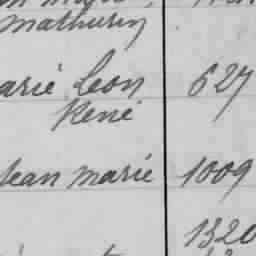 Mathurin
arie Leon 627
René
Jean Marie 1009
1320